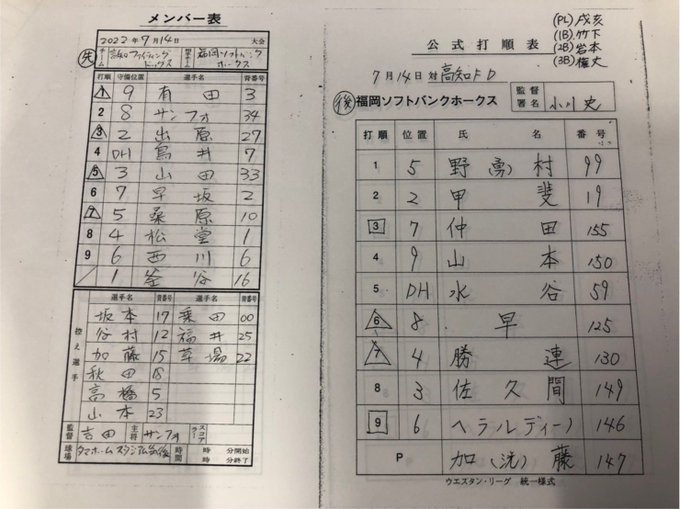 メンバー表
2022年7月14日 大会
先 チーム 高知ファイティングドッグス 相手チーム 福岡ソフトバンクホークス
打順 守備位置 選手名 背番号
1 9 有田 3
2 8 サンフォ 34
3 2 出原 27
4 DH 鳥井 7
5 3 山田 33
6 7 早坂 2
7 5 桑原 10
8 4 松堂 1
9 6 西川 6
1 釜谷 16
控え選手
選手名 背番号 選手名 背番号
坂本 17 乗田 00
谷村 12 福井 25
加藤 15 草場 22
秋田 8
高橋 5
山本 23
監督 吉田 主将 サンフォ スコアラー
球場 タマホームスタジアム筑後 時間 時 分開始
時 分終了
(PL) 戌亥
(1B) 竹下
(2B) 岩本
(3B) 権丈
公式打順表
7月14日 対 高知FD
後 福岡ソフトバンクホークス 監督署名 小川史
打順 位置 氏名 番号
1 5 野(勇)村 99
2 2 甲斐 19
3 7 仲田 155
4 9 山本 150
5 DH 水谷 59
6 8 早 125
7 4 勝連 130
8 3 佐久間 149
9 6 ヘラルディーノ 146
P 加(洸)藤 147
ウエスタン・リーグ 統一様式